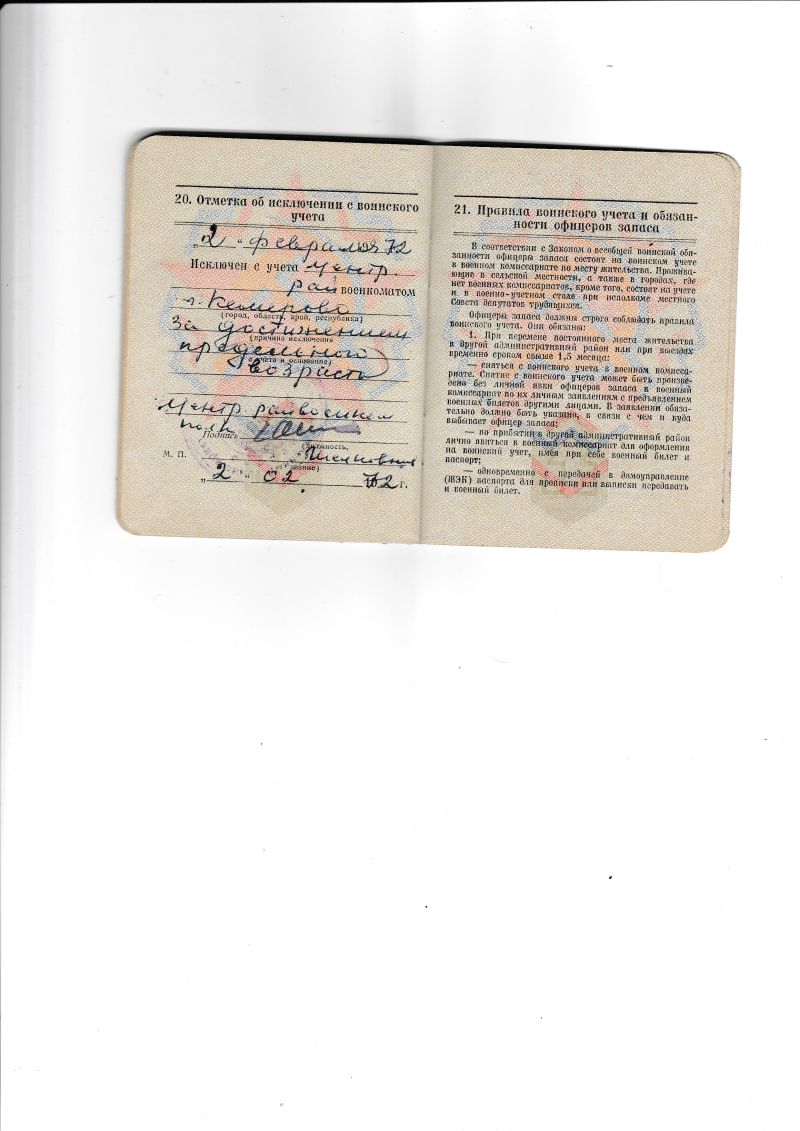 20. Отметка об исключении с воинского
учета
„2“ февраля 72
Исключен с учета Центр.
рай военкоматом
г. Кемерово
(город, область, край, республика)
За достижением
(причина исключения
предельного
с учета и основание)
возраста
Центр райвоенком
полк
Подпись
(должность,
М. П.
звание)
„2“ 02 72 г.
21. Правила воинского учета и обязан-
ности офицеров запаса
В соответствии с Законом о всеобщей воинской обя-
занности офицеры запаса состоят на воинском учете
в военном комиссариате по месту жительства. Прожива-
ющие в сельской местности, а также в городах, где
нет военных комиссариатов, кроме того, состоят на учете
и в военно-учетном столе при исполкоме местного
Совета депутатов трудящихся.
Офицеры запаса должны строго соблюдать правила
воинского учета. Они обязаны:
1. При перемене постоянного места жительства
в другой административный район или при выездах
временно сроком свыше 1,5 месяца:
— сняться с воинского учета в военном комисса-
риате. Снятие с воинского учета может быть произве-
дено без личной явки офицеров запаса в военный
комиссариат по их личным заявлениям с предъявлением
военных билетов другими лицами. В заявлении обяза-
тельно должно быть указано, в связи с чем и куда
выбывает офицер запаса;
— по прибытии в другой административный район
лично явиться в военный комиссариат для оформления
на воинский учет, имея при себе военный билет и
паспорт;
— одновременно с передачей в домоуправление
(ЖЭК) паспорта для прописки или выписки передавать
и военный билет.